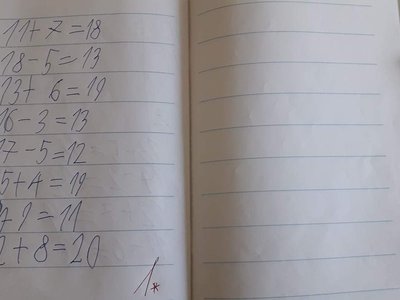 11 + 7 = 18
18 - 5 = 13
13 + 6 = 19
16 - 3 = 13
17 - 5 = 12
5 + 4 = 19
= 11
2 + 8 = 20
1*